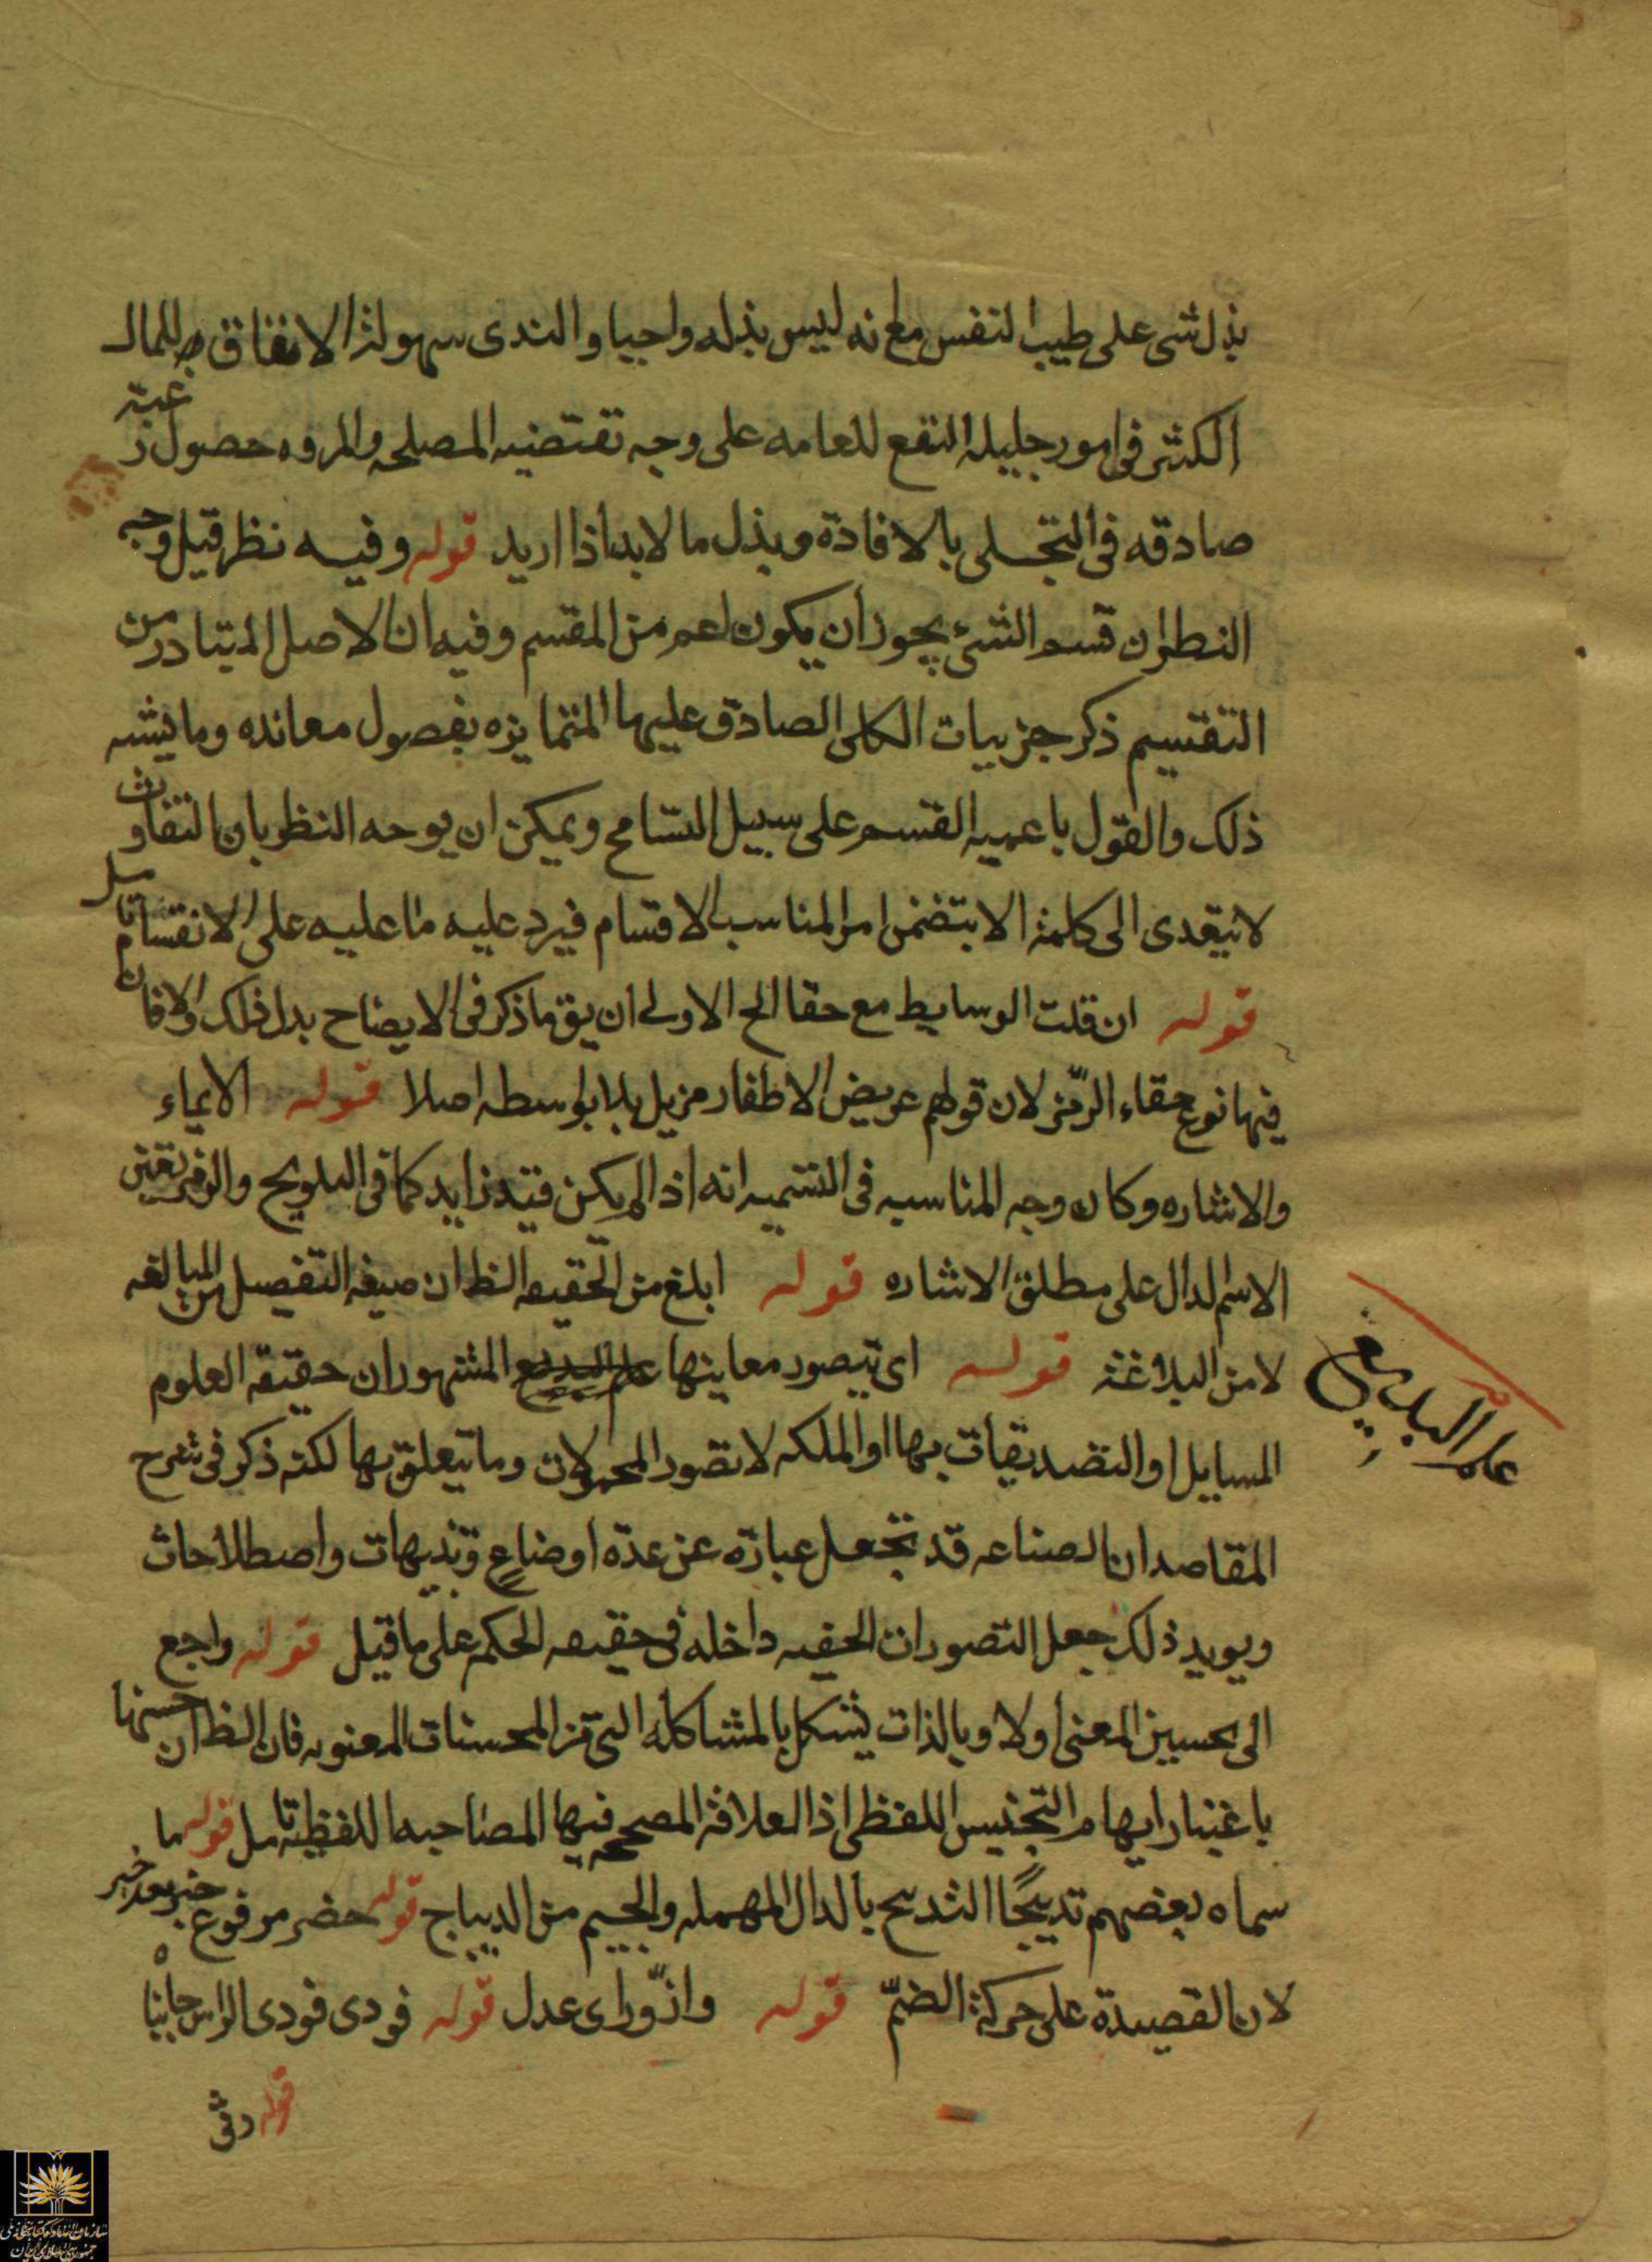 بذل شی علی طیب النفس مع انه لیس بذله واجبا و الندی سهولة الانفاق للمال
الکثیر فی امور جلیله النفع للعامه علی وجه تقتضیه المصلحه والمروه حصول رغبة
صادقه فی التجلی بالافادة و بذل مالابد اذا ارید قوله وفیه نظر قیل وجه
النظر ان قسم الشیء یجوز ان یکون اعم من المقسم وفیه ان الاصل المتبادر من
التقسیم ذکر جزییات الکلی الصادق علیها المتمایزه بفصول معانده وما یشبه
ذلک والقول باعمیه القسم علی سبیل التسامح ویمکن ان یوجه النظر بان التفاوت
لایتعدی الی کلمة الا بتضمن امر المناسب الاقسام فیرد علیه ما علیه علی الانقسام تامل
قوله ان قلت الوسایط مع خفا الخ الاولی ان یق ما ذکر فی الایضاح بدل ذلک والا فان
فیها نوع خفاء الرمز لان قولهم عریض الاظفار مزیل بلا بواسطه اصلا قوله الایماء
والاشاره وکان وجه المناسبه فی التسمیه انه اذا لم یکن قید زاید کما فی التلویح والرمز تعین
الاسم الدال علی مطلق الاشاره قوله ابلغ من الحقیقه الظ ان صیغه التفصیل من المبالغه
لا من البلاغة قوله ای یتصور معاینها علم البدیع المشهور ان حقیقه العلوم
علم البدیع
المسایل او التصدیقات بها او الملکه لا تصور المحمولات وما یتعلق بها لکنه ذکر فی شرح
المقاصد ان الصناعه قد تجعل عبارة عن عدة اوضاع وتنبیهات واصطلاحات
ویوید ذلک جعل التصورات الحقیه داخله فی حقیقه الحکم علی ما قیل قوله راجع
الی تحسین المعنی اولا وبالذات یشکل بالمشاکلة التی من المحسنات المعنویه فان الظ ان حسنها
باعتبار ایهام التجنیس اللفظی اذ العلاقة المصححه فیها المصاحبه اللفظیة تامل قوله ما
سماه بعضهم تدبیجًا التدبیج بالدال المهمله والجیم من الدیباج قوله خضر مرفوع خبر بعد خبر
لان القصیدة علی حرکة الضمّ قوله وازورّ ای عدل قوله فودی فودی الراس جانباه
قوله رقی